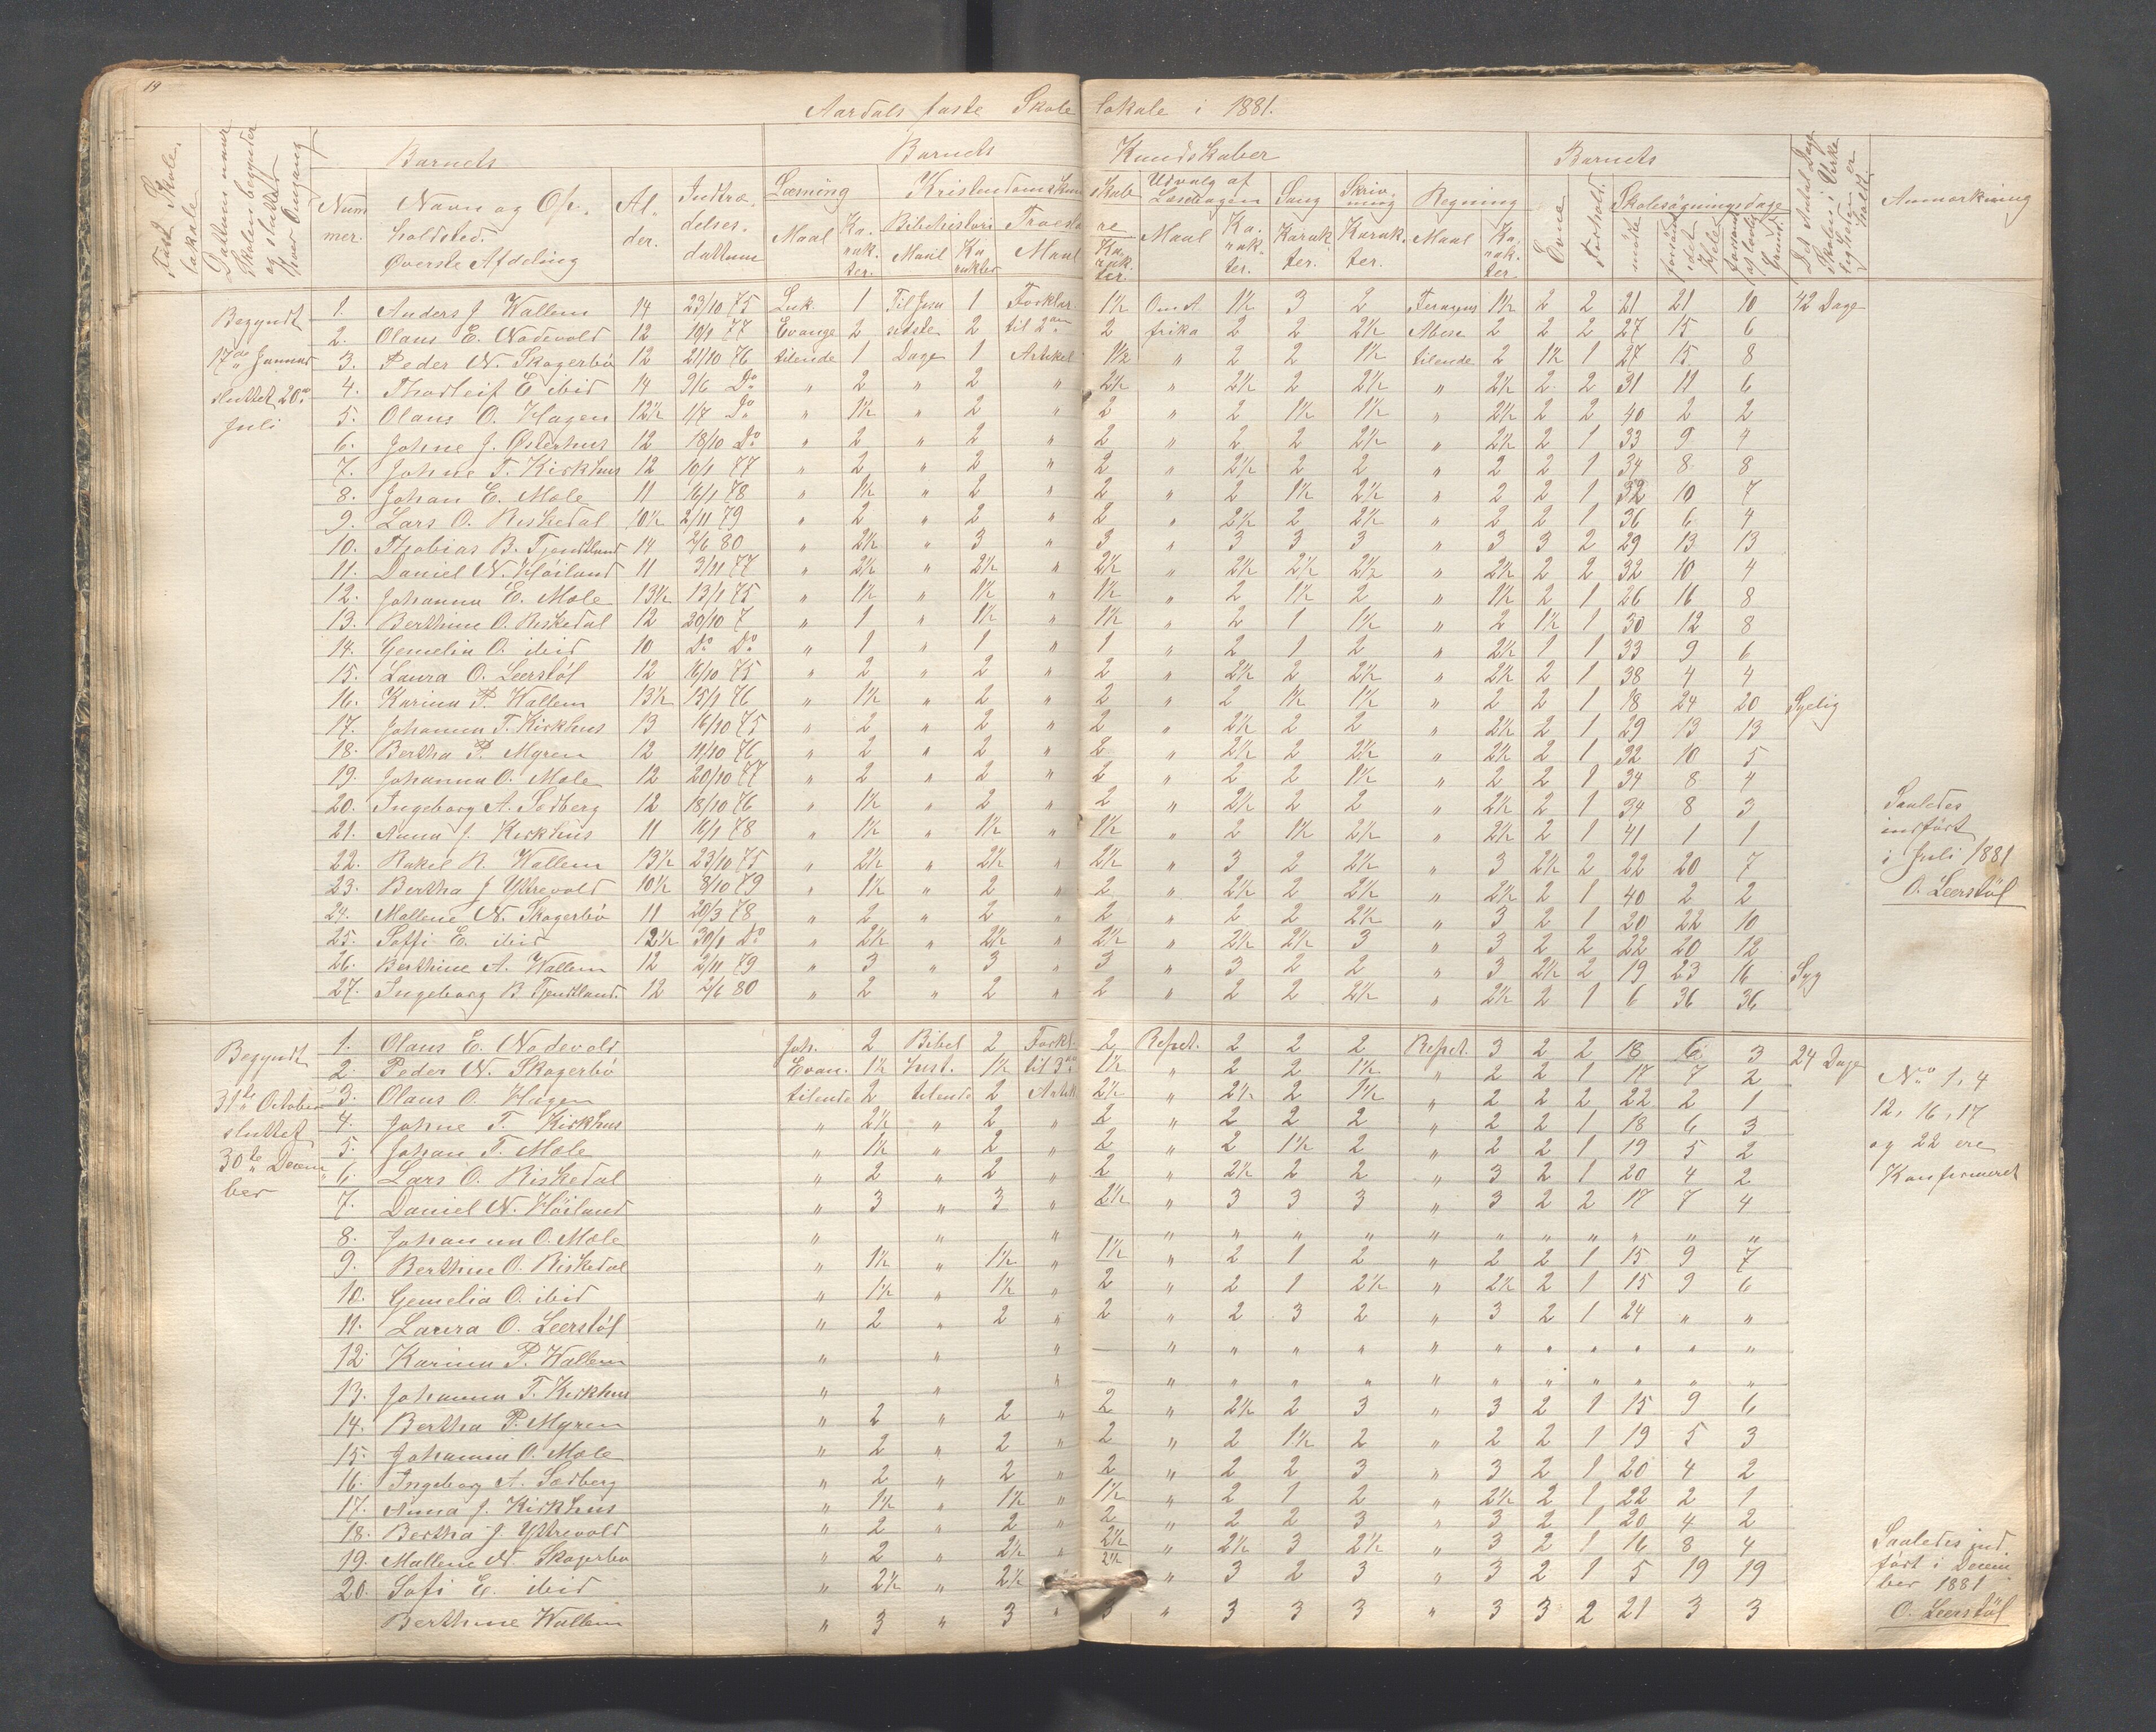 19
Aardals faste Skolelokale i 1881.
Fast Skolelokale. Dattum naar Skolen begynder og sluttet hver Omgang Barnets Barnets Kundskaber Barnets Det Antal Dage Skolen i Virkeligheden er holdt. Anmærkning
Nummer. Navn og Opholdsted. Øverste Afdeling Alder. Indtrædelses-dattum Læsning Kristendomskundskab Udvalg af Læsebogen Sang Skrivning Regning Evne Forhold. Skolesøgningsdage
Maal Karakter. Bibelhistori Maal Karakter Troesl. Maal Karakter. Maal Karakter. Karakter. Karakter. Maal Karakter. mødte forsømt i det Hele forsømt af lovlig Grund.
Begyndt 17de Januar sluttet 20de Juli
1. Anders J. Wallem 14 23/10 75 Luk. 1 Til Jesu 1 Forklar. 1½ Om A 1½ 3 2 Feragus 1½ 2 2 21 21 10 42 Dage
2. Olaus E. Nodevold 12 10/1 77 Evange 2 sidste 2 til 2den 2 frika 2 2 2½ Mose 2 2 2 27 15 6
3. Peder N. Skogerbø 12 21/10 76 tilende 1 Dage 1 Artikel 1½ " 2 2 1½ tilende 2 1½ 1 27 15 8
4. Thorleif E. ibid 14 9/6 Do " 2 " 2 " 2½ " 2½ 2 2½ " 2½ 2 2 31 11 6
5. Olaus O. Hagen 12½ 1/7 Do " 1½ " 2 " 2 " 2 1½ 1½ " 2½ 2 2 40 2 2
6. Johne J. Østerhus 12 18/10 Do " 2 " 2 " 2 " 2 2 2½ " 2½ 2 1 33 9 4
7. Johne T. Kirkhus 12 10/1 77 " 2 " 2 " 2 " 2½ 2 2 " 2 2 1 34 8 8
8. Johan E. Mæle 11 16/1 78 " 1½ " 2 " 2 " 2 1½ 2½ " 2 2 1 32 10 7
9. Lars O. Riskedal 10½ 2/11 79 " 2 " 2 " 2 " 2½ 2 2½ " 2 2 1 36 6 4
10. Thobias B. Tjentland 14 2/6 80 " 2½ " 3 " 3 " 3 3 3 " 3 3 2 29 13 13
11. Daniel N. Høiland 11 3/11 77 " 2½ " 2½ " 2½ " 2½ 2½ 2½ " 2½ 2 2 32 10 4
12. Johanna E. Mæle 13½ 13/1 75 " 1½ " 1½ " 1½ " 2 1½ 2 " 1½ 2 1 26 16 8
13. Berthine O. Riskedal 12 20/10 7 " 1 " 1½ " 1½ " 2 1 1½ " 2 1½ 1 30 12 8
14. Gemelia O. ibid 10 Do Do " 1 " 1 " 1 " 2 1 2 " 2½ 1 1 33 9 6
15. Laura O. Leerstøl 12 16/10 75 " 2 " 2 " 2 " 2½ 2 2½ " 2½ 2 1 38 4 4
16. Karina P. Wallem 13½ 15/1 76 " 1½ " 2 " 2 " 2 1½ 1½ " 2 2 1 18 24 20 Sygelig
17. Johanna T. Kirkhus 13 16/10 75 " 2 " 2 " 2 " 2½ 2 2 " 2½ 2 1 29 13 13
18. Bertha P. Myren 12 11/10 76 " 2 " 2 " 2 " 2½ 2 2½ " 2½ 2 1 32 10 5
19. Johanna O. Mæle 12 20/10 77 " 2 " 2 " 2 " 2 2 1½ " 2 2 1 34 8 4
20. Ingeborg A. Sedberg 12 18/10 76 " 1½ " 2 " 2 " 2½ 2 2 " 2½ 2 1 34 8 3
21. Anna J. Kirkhus 11 16/1 78 " 1½ " 1½ " 1½ " 2 1½ 2½ " 2½ 2 1 41 1 1
22. Rakel R. Wallem 13½ 23/10 75 " 2½ " 2½ " 2½ " 3 2 2½ " 3 2½ 2 22 20 7
23. Bertha J. Yttrevold 10½ 8/10 79 " 1½ " 2 " 2 " 2½ 2 2½ " 2½ 2 1 40 2 2
24. Mallene N. Skogerbø 11 20/3 78 " 2 " 2 " 2 " 2 2 2½ " 3 2 1 20 22 10
25. Soffi E. ibid 12½ 30/1 Do " 2½ " 2½ " 2½ " 2½ 2½ 3 " 3 2 2 22 20 12
26. Berthine A. Wallem 12 2/11 79 " 3 " 3 " 3 " 3 2 2 " 3 2½ 2 19 23 16 Syg
27. Ingeborg B. Tjentland. 12 2/6 80 " 2 " 2 " 2 " 2 2 2½ " 2½ 2 1 6 36 36
Saaledes
indført
i Juli 1881
O. Leerstøl
Begyndt 31te October sluttet 30te December
1. Olaus E. Nodevold Joh. 2 Bibel 2 Forkl. 2 Repet. 2 2 2 Repet. 3 2 2 18 6 3 24 Dage
2. Peder N. Skogerbø Evan. 1½ hist. 1½ til 3die 1½ " 2 2 1½ " 2 2 1 17 7 2
3. Olaus O. Hagen tilende 2 tilende 2 Artik 2½ " 2½ 2 1½ " 2 2 2 22 2 1
4. Johne T. Kirkhus " 2½ " 2 " 2 " 2 2 2 " 2 2 1 18 6 3
5. Johan T. Mæle " 1½ " 2 " 2 " 2 1½ 2 " 2 2 1 19 5 2
6. Lars O. Riskedal " 2 " 2 " 2 " 2½ 2 2 " 3 2 1 20 4 2
7. Daniel N. Høiland " 3 " 3 " 2½ " 3 3 3 " 3 2 2 17 7 4
8. Johanna O. Mæle " " " — " " " " " " " " " " "
9. Berthine O. Riskedal " 1½ " 1½ " 1½ " 2 1 2 " 2 2 1 15 9 7
10. Gemelia O. ibid " 1½ " 1½ " 2 " 2 1 2½ " 2½ 2 1 15 9 6
11. Laura O. Leerstøl " 2 " 2 " 2 " 2 3 2 " 3 2 1 24 " "
12. Karina P. Wallem " " " — " " " " " " " " " " "
13. Johanna T. Kirkhus " " " — " " " " " " " " " " "
14. Bertha P. Myren " 2 " 2 " 2 " 2½ 2 3 " 3 2 1 15 9 6
15. Johanna O. Mæle " 2 " 2 " 2 " 2 1½ 2 " 2 2 1 19 5 3
16. Ingeborg A. Sedberg " 2 " 2 " 2 " 2 2 3 " 3 2 1 20 4 2
17. Anna J. Kirkhus " 1½ " 1½ " 1½ " 2 1 2 " 2½ 2 1 22 2 1
18. Bertha J. Yttrevold " 2 " 2 " 2 " 2 2 3 " 3 2 1 20 4 2
19. Mallene N. Skogerbø " 2 " 2½ " 2½ " 2½ 3 2½ " 3 2 1 16 8 4
20. Sofi E. ibid " 2½ " 2½ " 2½ " 3 2 3 " 3 2 1 5 19 19
Berthine Wallem " 3 " 3 " 3 " 3 3 3 " 3 3 2 21 3 3
No 1, 4
12, 16, 17
og 22 ere
Konfirmeret
Saaledes ind-
ført i Decem-
ber 1881
O. Leerstøl